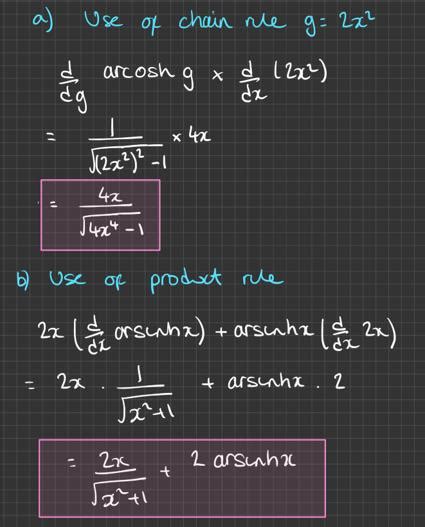 a) Use of chain rule g = 2x²
d/dg arcosh g × d/dx (2x²)
= 1/√((2x²)² - 1) × 4x
= 4x/√(4x⁴ - 1)
b) Use of product rule
2x (d/dx arsinhx) + arsinhx (d/dx 2x)
= 2x . 1/√(x²+1) + arsinhx . 2
= 2x/√(x²+1) + 2 arsinhx